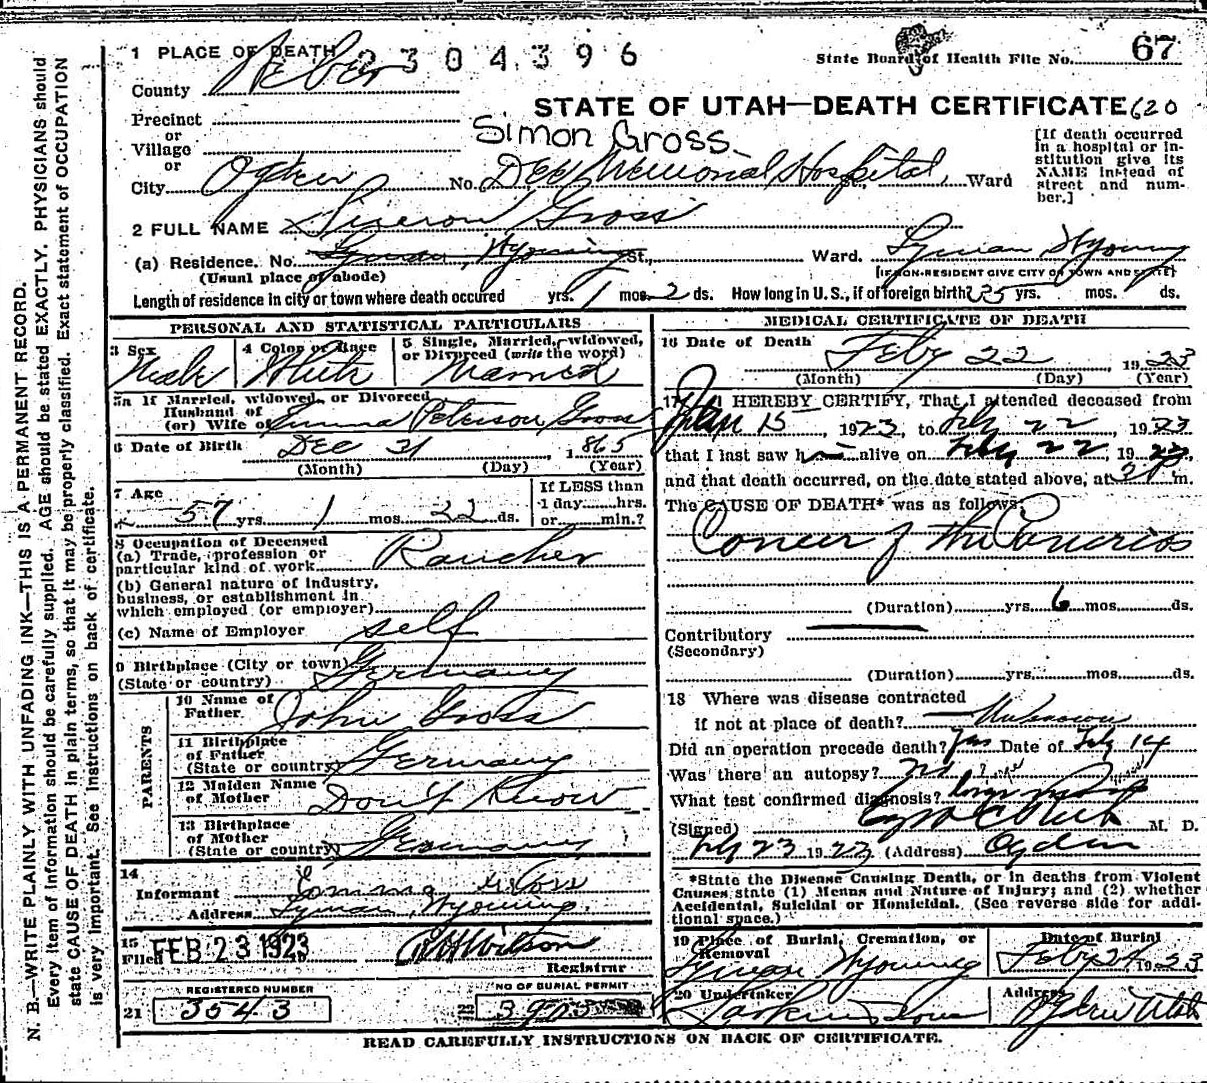 N. B.—WRITE PLAINLY WITH UNFADING INK—THIS IS A PERMANENT RECORD.
Every item of information should be carefully supplied. AGE should be stated EXACTLY. PHYSICIANS should
state CAUSE OF DEATH in plain terms, so that it may be properly classified. Exact statement of OCCUPATION
is very important. See instructions on back of certificate.
1 PLACE OF DEATH 2304396
State Board of Health File No. 67
County Weber
STATE OF UTAH—DEATH CERTIFICATE 620
Precinct
or
Village
or
Simon Gross
[If death occurred
in a hospital or in-
stitution give its
NAME instead of
street and num-
ber.]
City Ogden No. Dee Memorial Hospital St., Ward
2 FULL NAME Simon Gross
(a) Residence. No. Lyman, Wyoming St., Ward. Lyman Wyoming
(Usual place of abode) [IF NON-RESIDENT GIVE CITY OR TOWN AND STATE]
Length of residence in city or town where death occured yrs. 1 mos. 2 ds. How long in U. S., if of foreign birth? 35 yrs. mos. ds.
PERSONAL AND STATISTICAL PARTICULARS
3 Sex Male
4 Color or Race White
5 Single, Married, widowed,
or Divorced (write the word)
Married
5a If Married, widowed, or Divorced
Husband of
(or) Wife of Emma Peterson Gross
6 Date of Birth Dec 31 1865
(Month) (Day) (Year)
7 Age
57 yrs. 1 mos. 22 ds.
If LESS than
1 day hrs.
or min.?
8 Occupation of Deceased
(a) Trade, profession or
particular kind of work Rancher
(b) General nature of industry,
business, or establishment in
which employed (or employer)
(c) Name of Employer self
9 Birthplace (City or town)
(State or country) Germany
PARENTS
10 Name of
Father John Gross
11 Birthplace
of Father
(State or country) Germany
12 Maiden Name
of Mother Don't Know
13 Birthplace
of Mother
(State or country) Germany
14
Informant Emma Gross
Address Lyman, Wyoming
15
Filed FEB 23 1923
Registrar
REGISTERED NUMBER
21 3543
NO OF BURIAL PERMIT
22
MEDICAL CERTIFICATE OF DEATH
16 Date of Death Feby 22 1923
(Month) (Day) (Year)
17 I HEREBY CERTIFY, That I attended deceased from
Jan 15, 1923, to Feby 22 1923
that I last saw h alive on Feby 22, 1923,
and that death occurred, on the date stated above, at m.
The CAUSE OF DEATH* was as follows:
Cancer of the Pancrias
(Duration) yrs. 6 mos. ds.
Contributory
(Secondary)
(Duration) yrs. mos. ds.
18 Where was disease contracted
if not at place of death? Unknown
Did an operation precede death? Yes Date of Feby 14
Was there an autopsy? no
What test confirmed diagnosis?
(Signed) M. D.
Feby 23 1923 (Address) Ogden
*State the Disease Causing Death, or in deaths from Violent
Causes, state (1) Means and Nature of Injury; and (2) whether
Accidental, Suicidal or Homicidal. (See reverse side for addi-
tional space.)
19 Place of Burial, Cremation, or
Removal
Lyman Wyoming
Date of Burial
Feby 24 1923
20 Undertaker
Larkin & Sons
Address
Ogden Utah
READ CAREFULLY INSTRUCTIONS ON BACK OF CERTIFICATE.